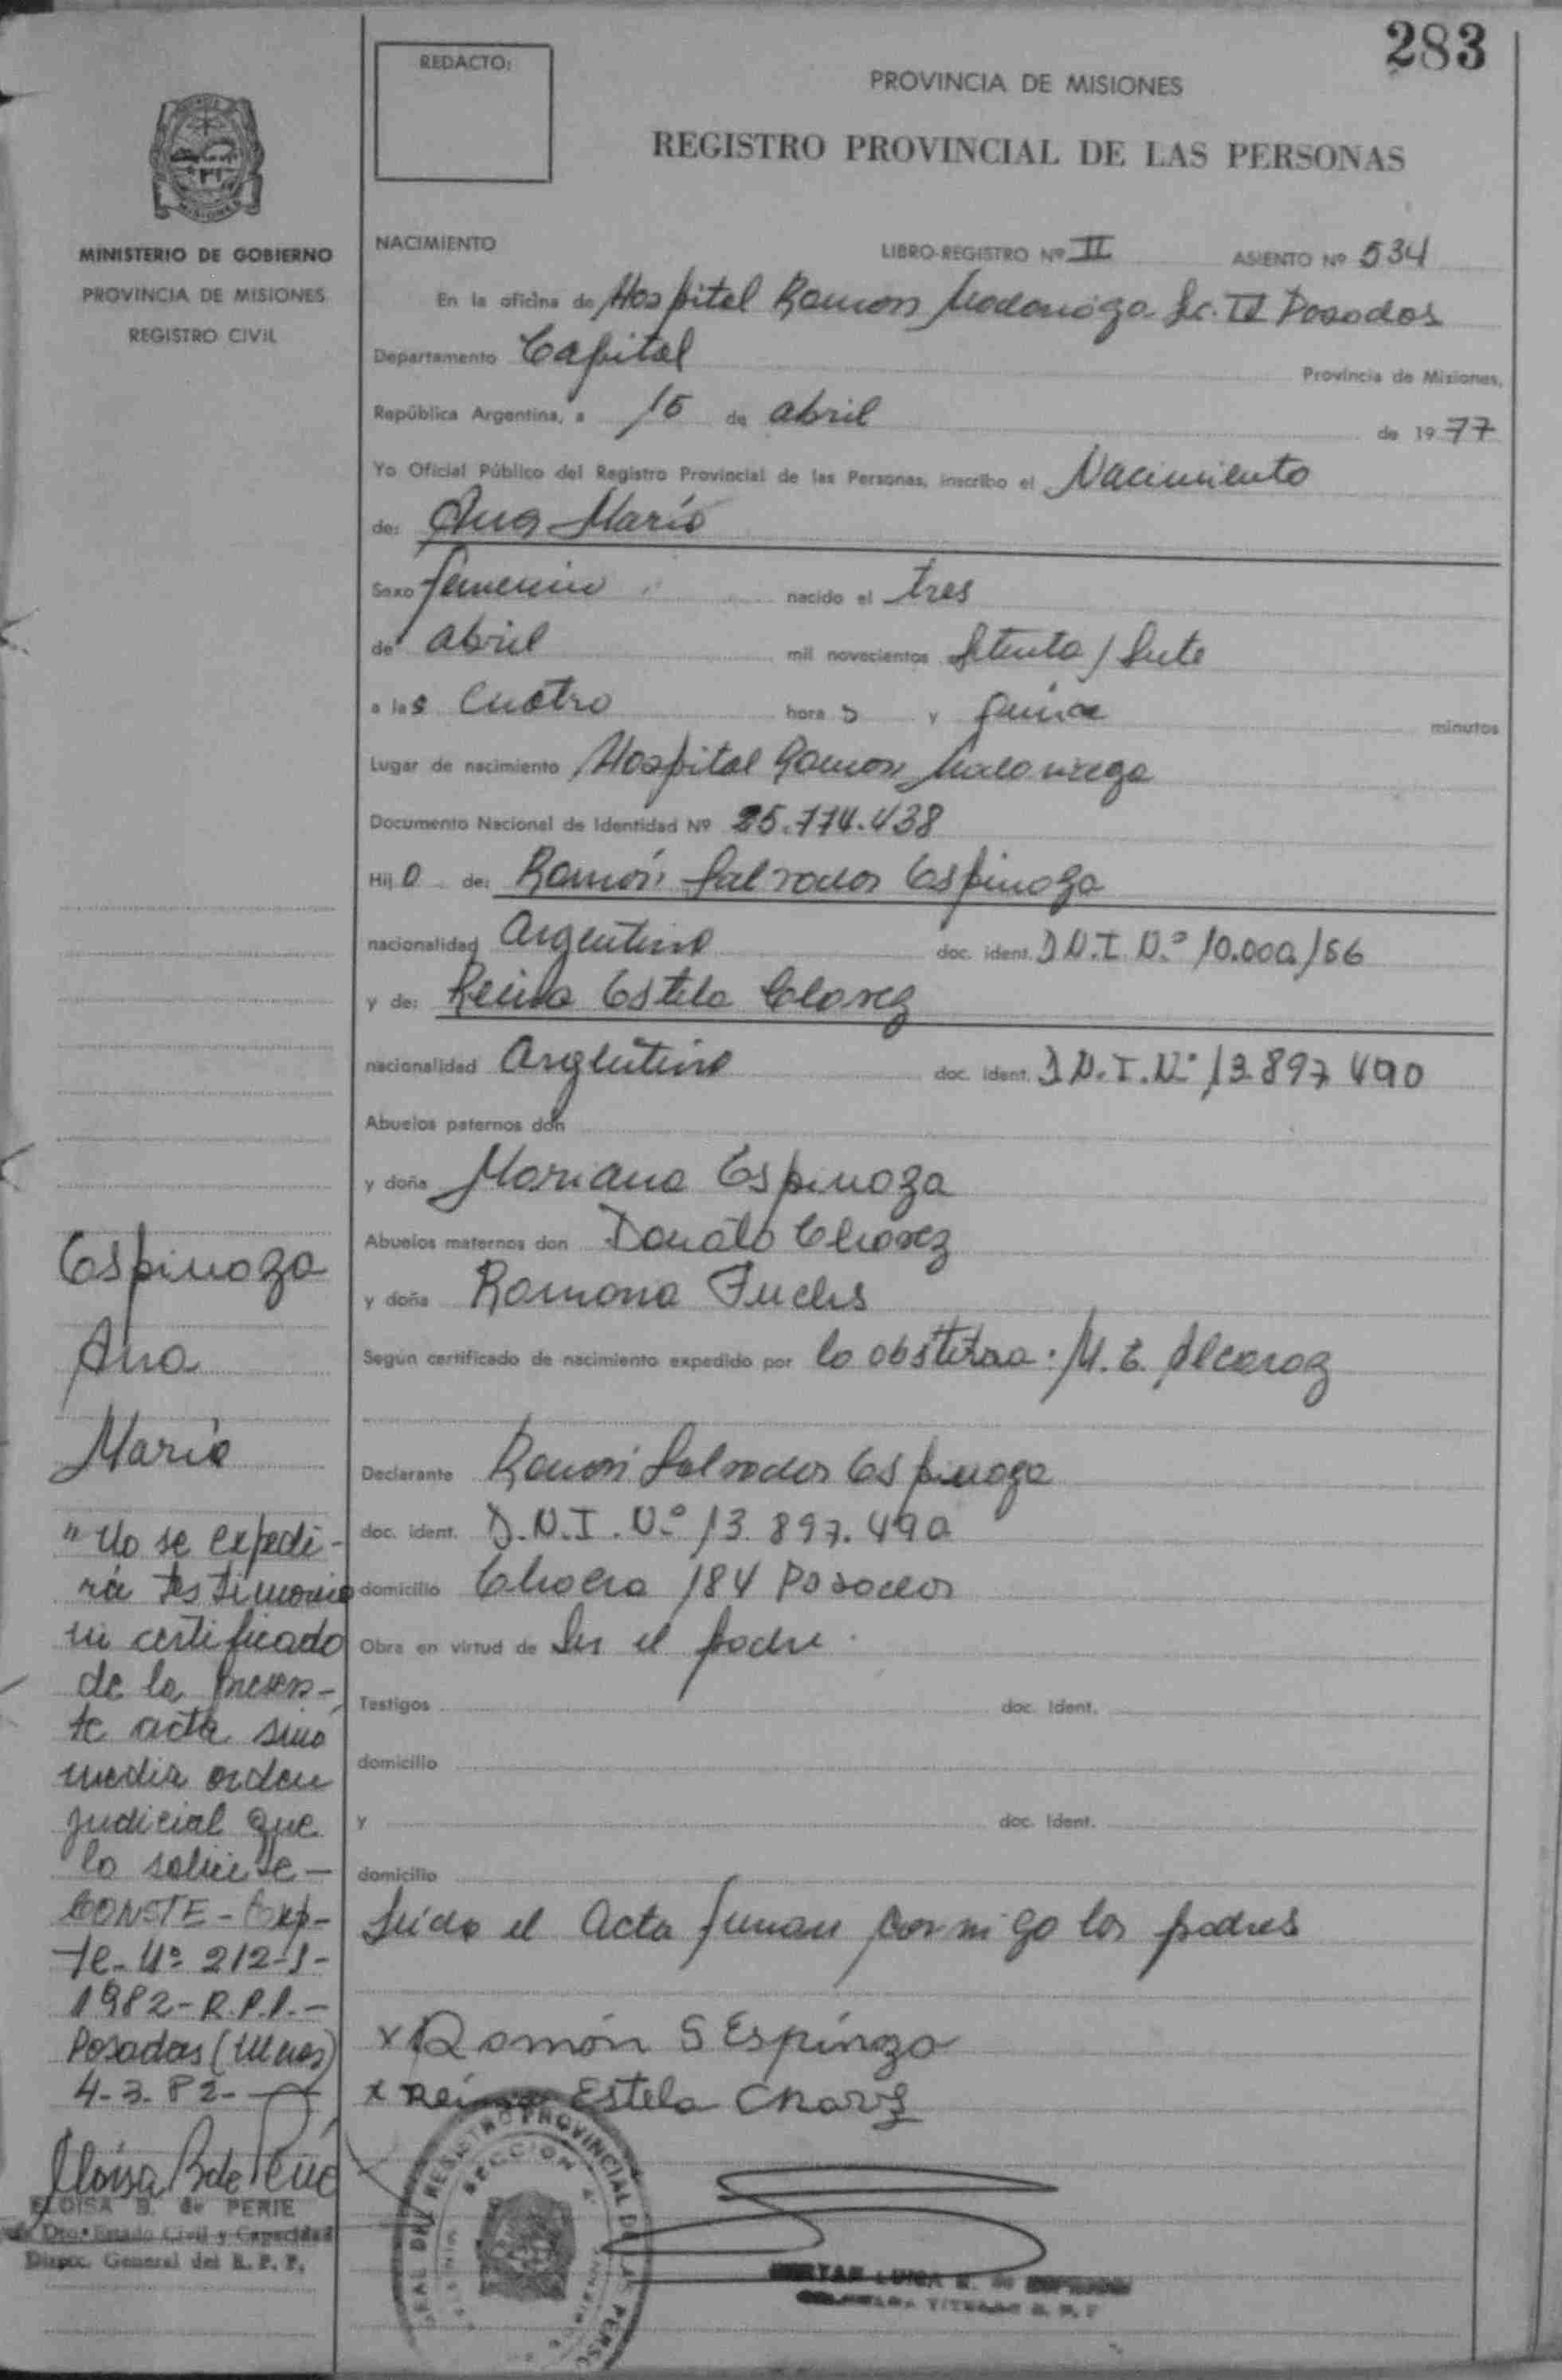 283
REDACTO:
PROVINCIA DE MISIONES
REGISTRO PROVINCIAL DE LAS PERSONAS
MISIONES
MINISTERIO DE GOBIERNO
PROVINCIA DE MISIONES
REGISTRO CIVIL
NACIMIENTO LIBRO-REGISTRO Nº II ASIENTO Nº 534
En la oficina de Hospital Ramon Madariaga Sc. II Posadas
Departamento Capital Provincia de Misiones,
República Argentina, a 15 de abril de 1977
Yo Oficial Público del Registro Provincial de las Personas, inscribo el Nacimiento
de: Ana María
Sexo femenino nacido el tres
de abril mil novecientos setenta / siete
a las cuatro horas y quince minutos
Lugar de nacimiento Hospital Ramon Madariaga
Documento Nacional de Identidad Nº 25.774.438
Hija de: Ramón Salvador Espinoza
nacionalidad Argentino doc. ident. D.N.I. N.º 10.000.156
y de: Reina Estela Chavez
nacionalidad Argentina doc. ident. D.N.I. Nº 13.897.490
Abuelos paternos don
y doña Mariana Espinoza
Abuelos maternos don Donato Chavez
y doña Ramona Fuchs
Según certificado de nacimiento expedido por la obstetra: M. E. Alcaraz
Declarante Ramon Salvador Espinoza
doc. ident. D.N.I. N.º 13.897.490
domicilio 184 Posadas
Obra en virtud de Ser el padre.
Testigos doc. Ident.
domicilio
y doc. Ident.
domicilio
Leida el Acta firman conmigo los padres
x Ramón S Espinoza
x Reina Estela Chavez
Espinoza
Ana
María
"No se expedi-
rá testimonio
ni certificado
de la presen-
te acta sino
media orden
judicial que
lo solicite-
CONSTE-Exp-
te-Nº 212-J-
1982-R.P.P.-
Posadas (Mnes)
4-3-82-
Eloisa B de Perié
ELOISA B. de PERIE
Dto. Estado Civil y Capacidad
Direcc. General del R. P. P.
REGISTRO PROVINCIAL DE LAS PERSO
SECCION 4